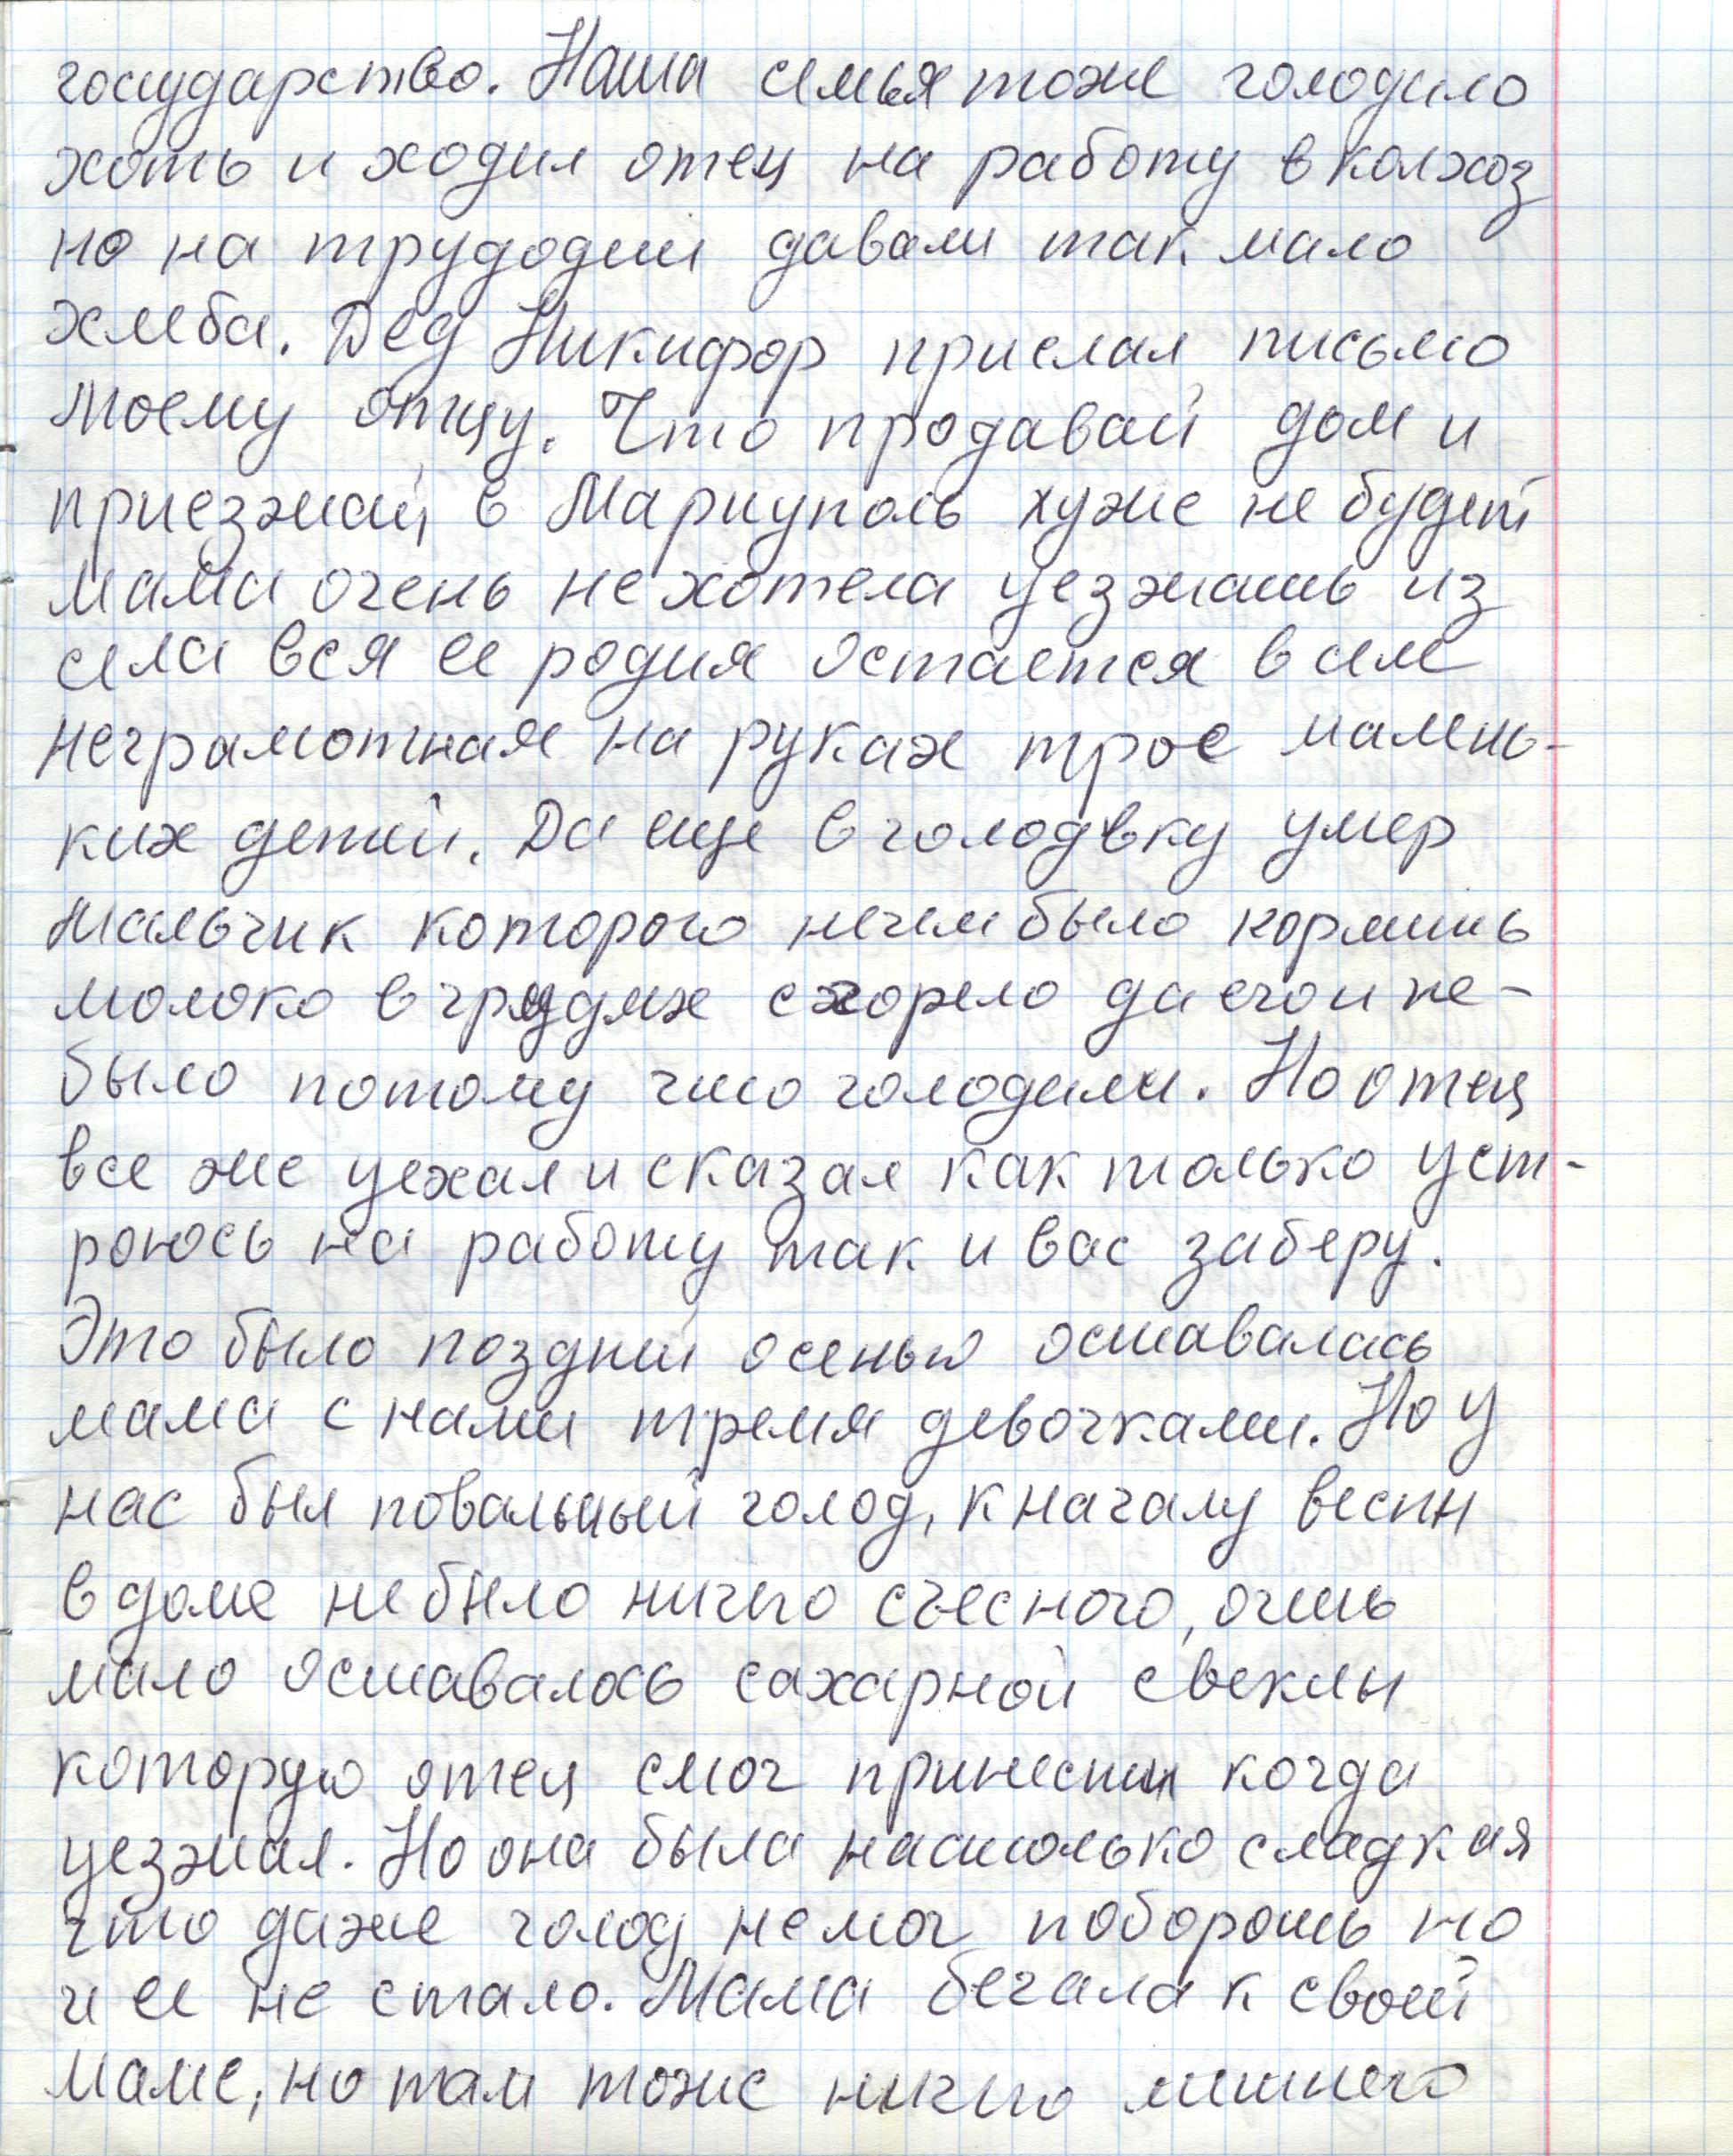 государство. Наша семья тоже голодило
хоть и ходил отец на работу в колхоз
но на трудодни давали так мало
хлеба. Дед Никифор прислал письмо
моему отцу. Что продавай дом и
приезжай в Мариуполь хуже не будет
мама очень не хотела уезжать из
села вся ее родня остается в селе
неграмотная на руках трое малень-
ких детей. Да еще в голодовку умер
мальчик которого нечем было кормить
молоко в грудях сгорело да его и не-
было потому что голодали. Но отец
все же уехал и сказал как только уст-
роюсь на работу так и вас заберу.
Это было поздней осенью оставалась
мама с нами тремя девочками. Но у
нас был повальный голод, к началу весны
в доме не было ничего съесного, очень
мало оставалось сахарной свеклы
которую отец смог принести когда
уезжал. Но она была настолько сладкая
что даже голод не мог побороть но
и ее не стало. Мама бегала к своей
маме, но там тоже ничего лишнего